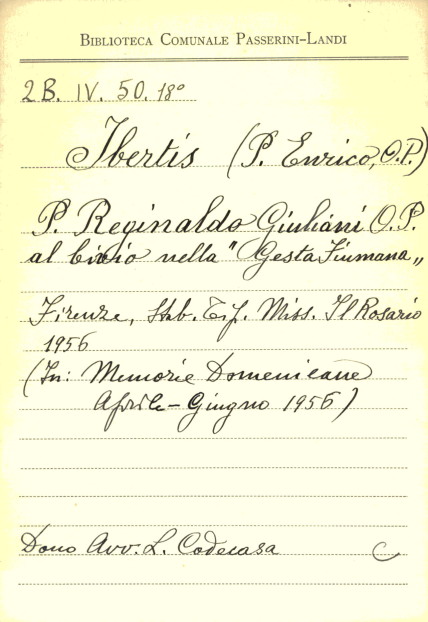 BIBLIOTECA COMUNALE PASSERINI-LANDI
2B. IV. 50. 18°
Ibertis (P. Enrico, O.P.)
P. Reginaldo Giuliani O.P.
al bivio nella "Gesta Fiumana„
Firenze, Stab. Tip. Miss. Il Rosario
1956
(In: Memorie Domenicane
Aprile-Giugno 1956)
Dono Avv. L. Codecasa C